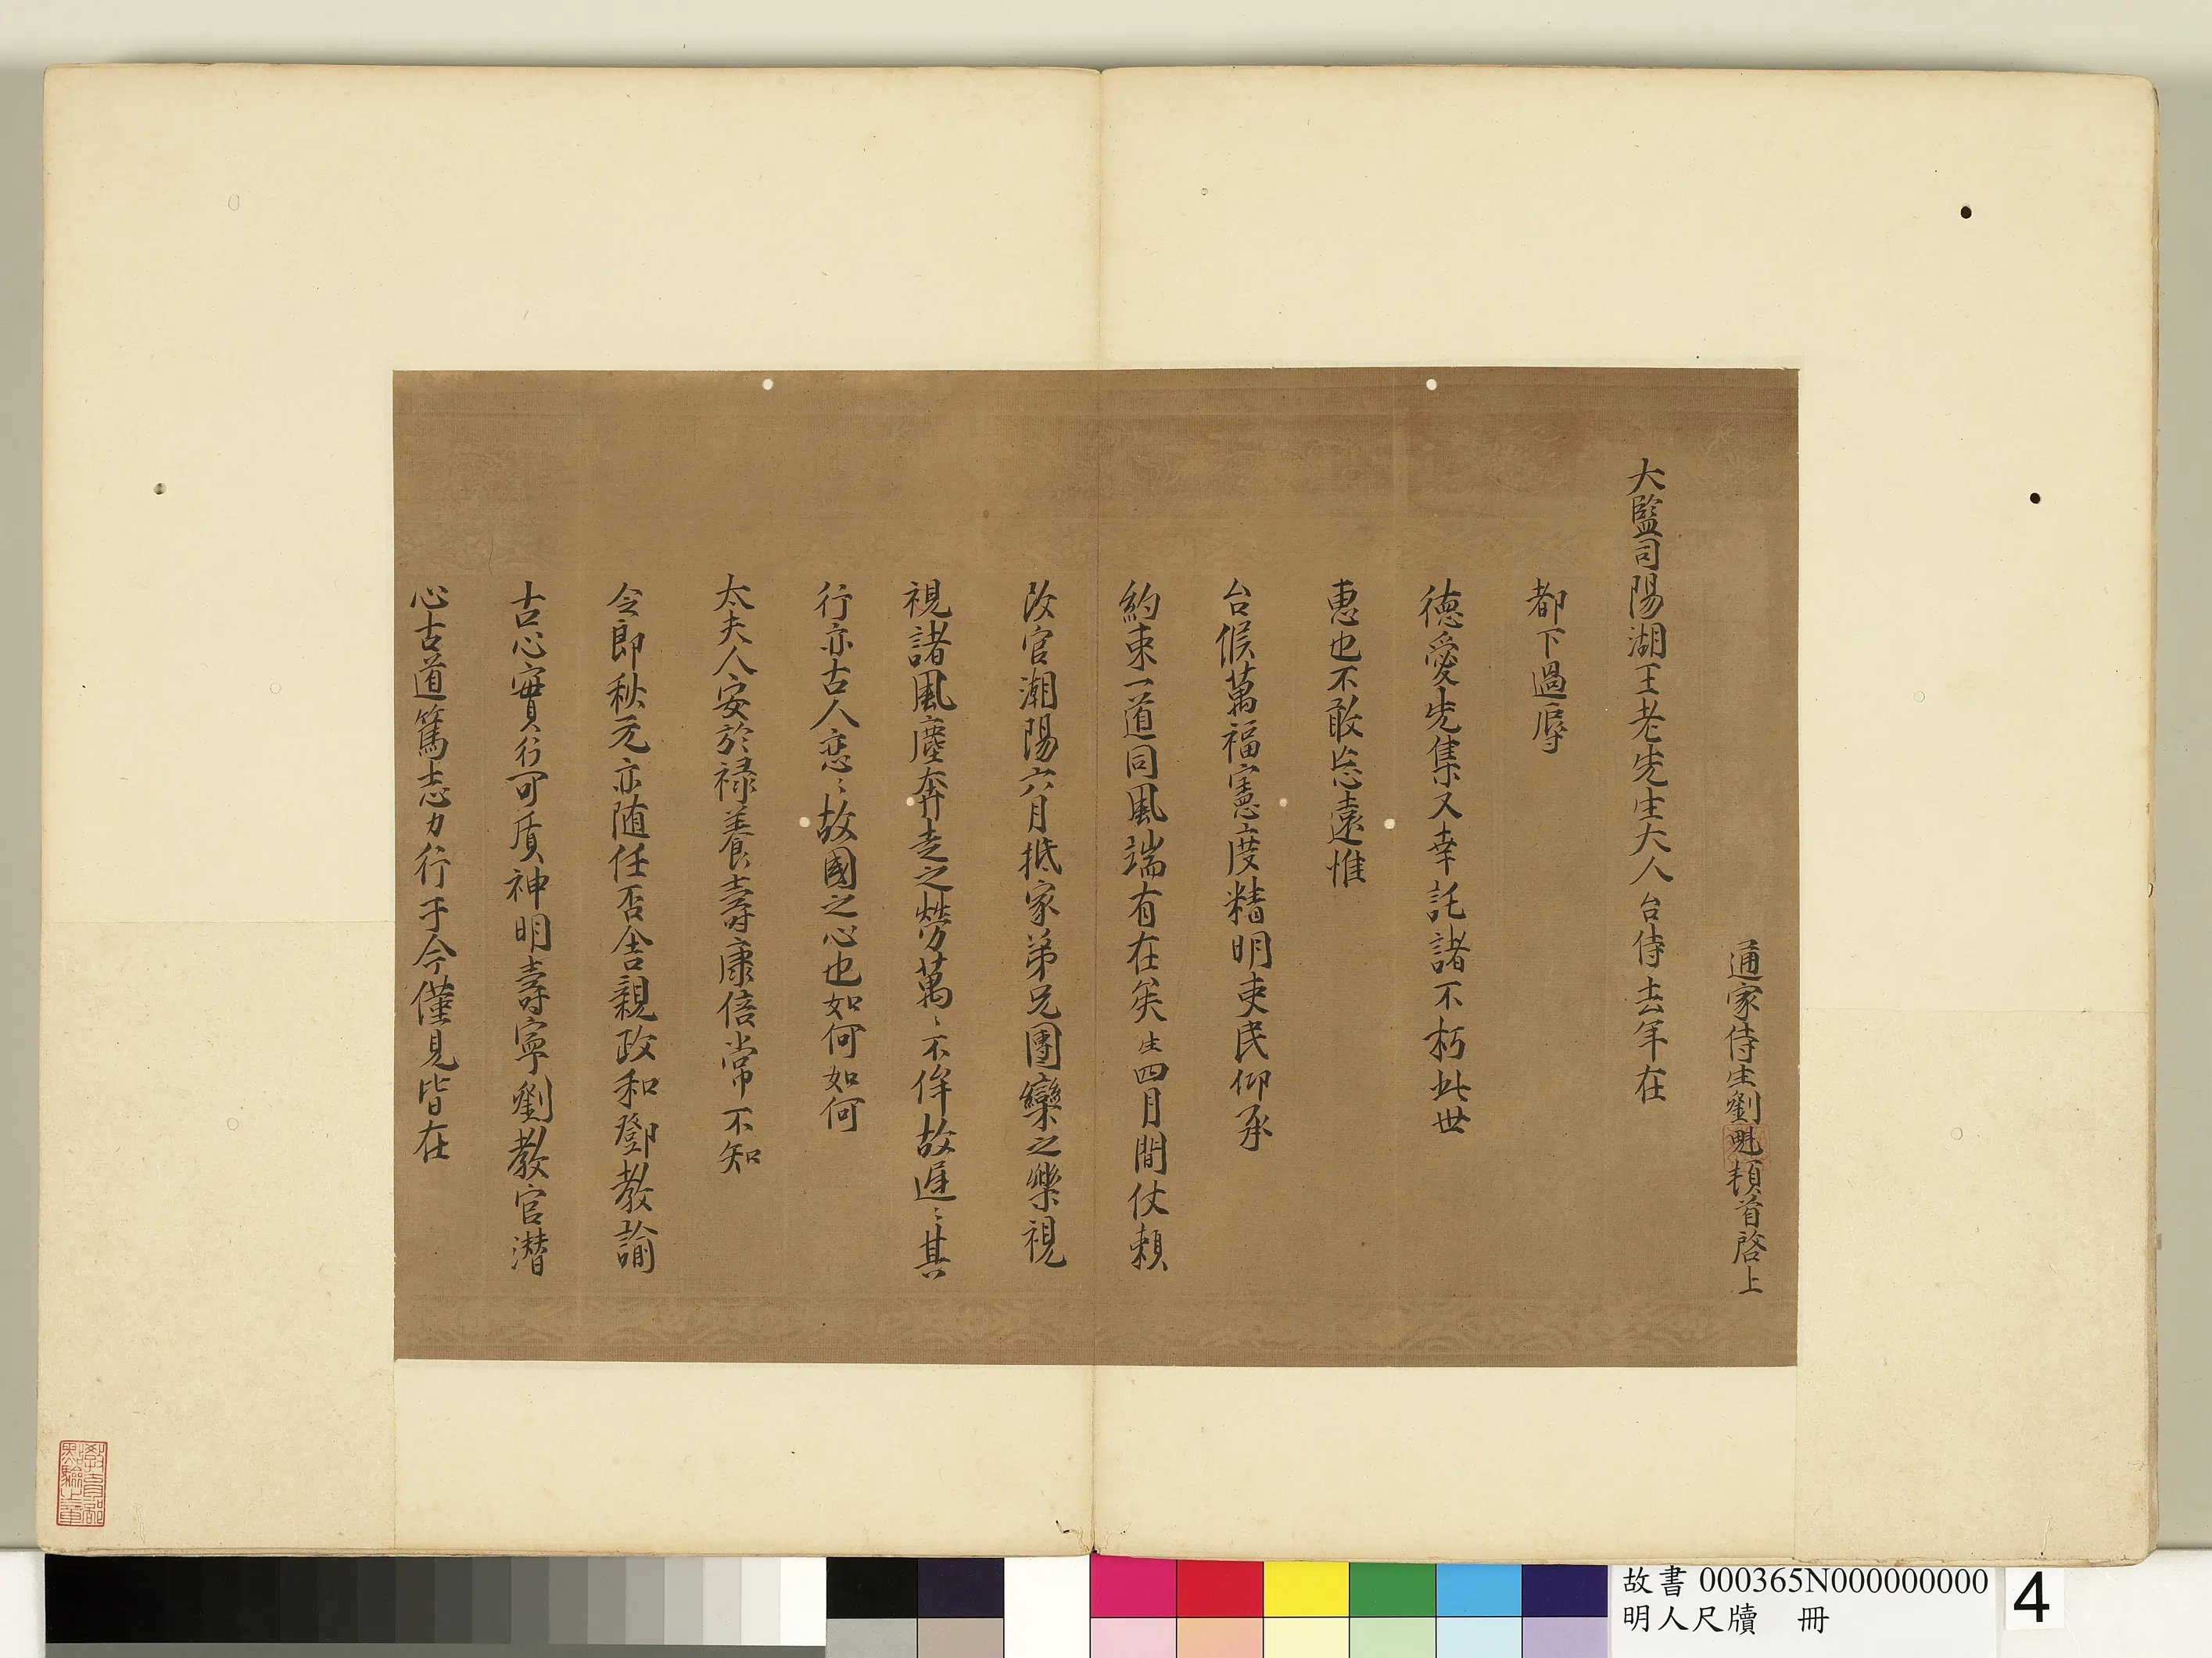 通家侍生劉魁頓首啓上
大監司陽湖王老先生大人台侍去年在
都下過辱
德愛先集又幸託諸不朽此世
惠也不敢忘遠惟
台候萬福憲度精明吏民仰承
約束一道同風端有在矣生四月間仗賴
改官潮陽六月抵家弟兄團欒之樂視
視諸風塵奔走之勞萬〻不侔故遲〻其
行亦古人戀〻故國之心也如何如何
太夫人安於祿養壽康倍常不知
令郎秋元亦随任否舍親政和鄧教諭
古心實行可質神明壽寧劉教官潜
心古道篤志力行于今僅見皆在
教育部點驗之章
故書 000365N000000000
明人尺牘 冊
4